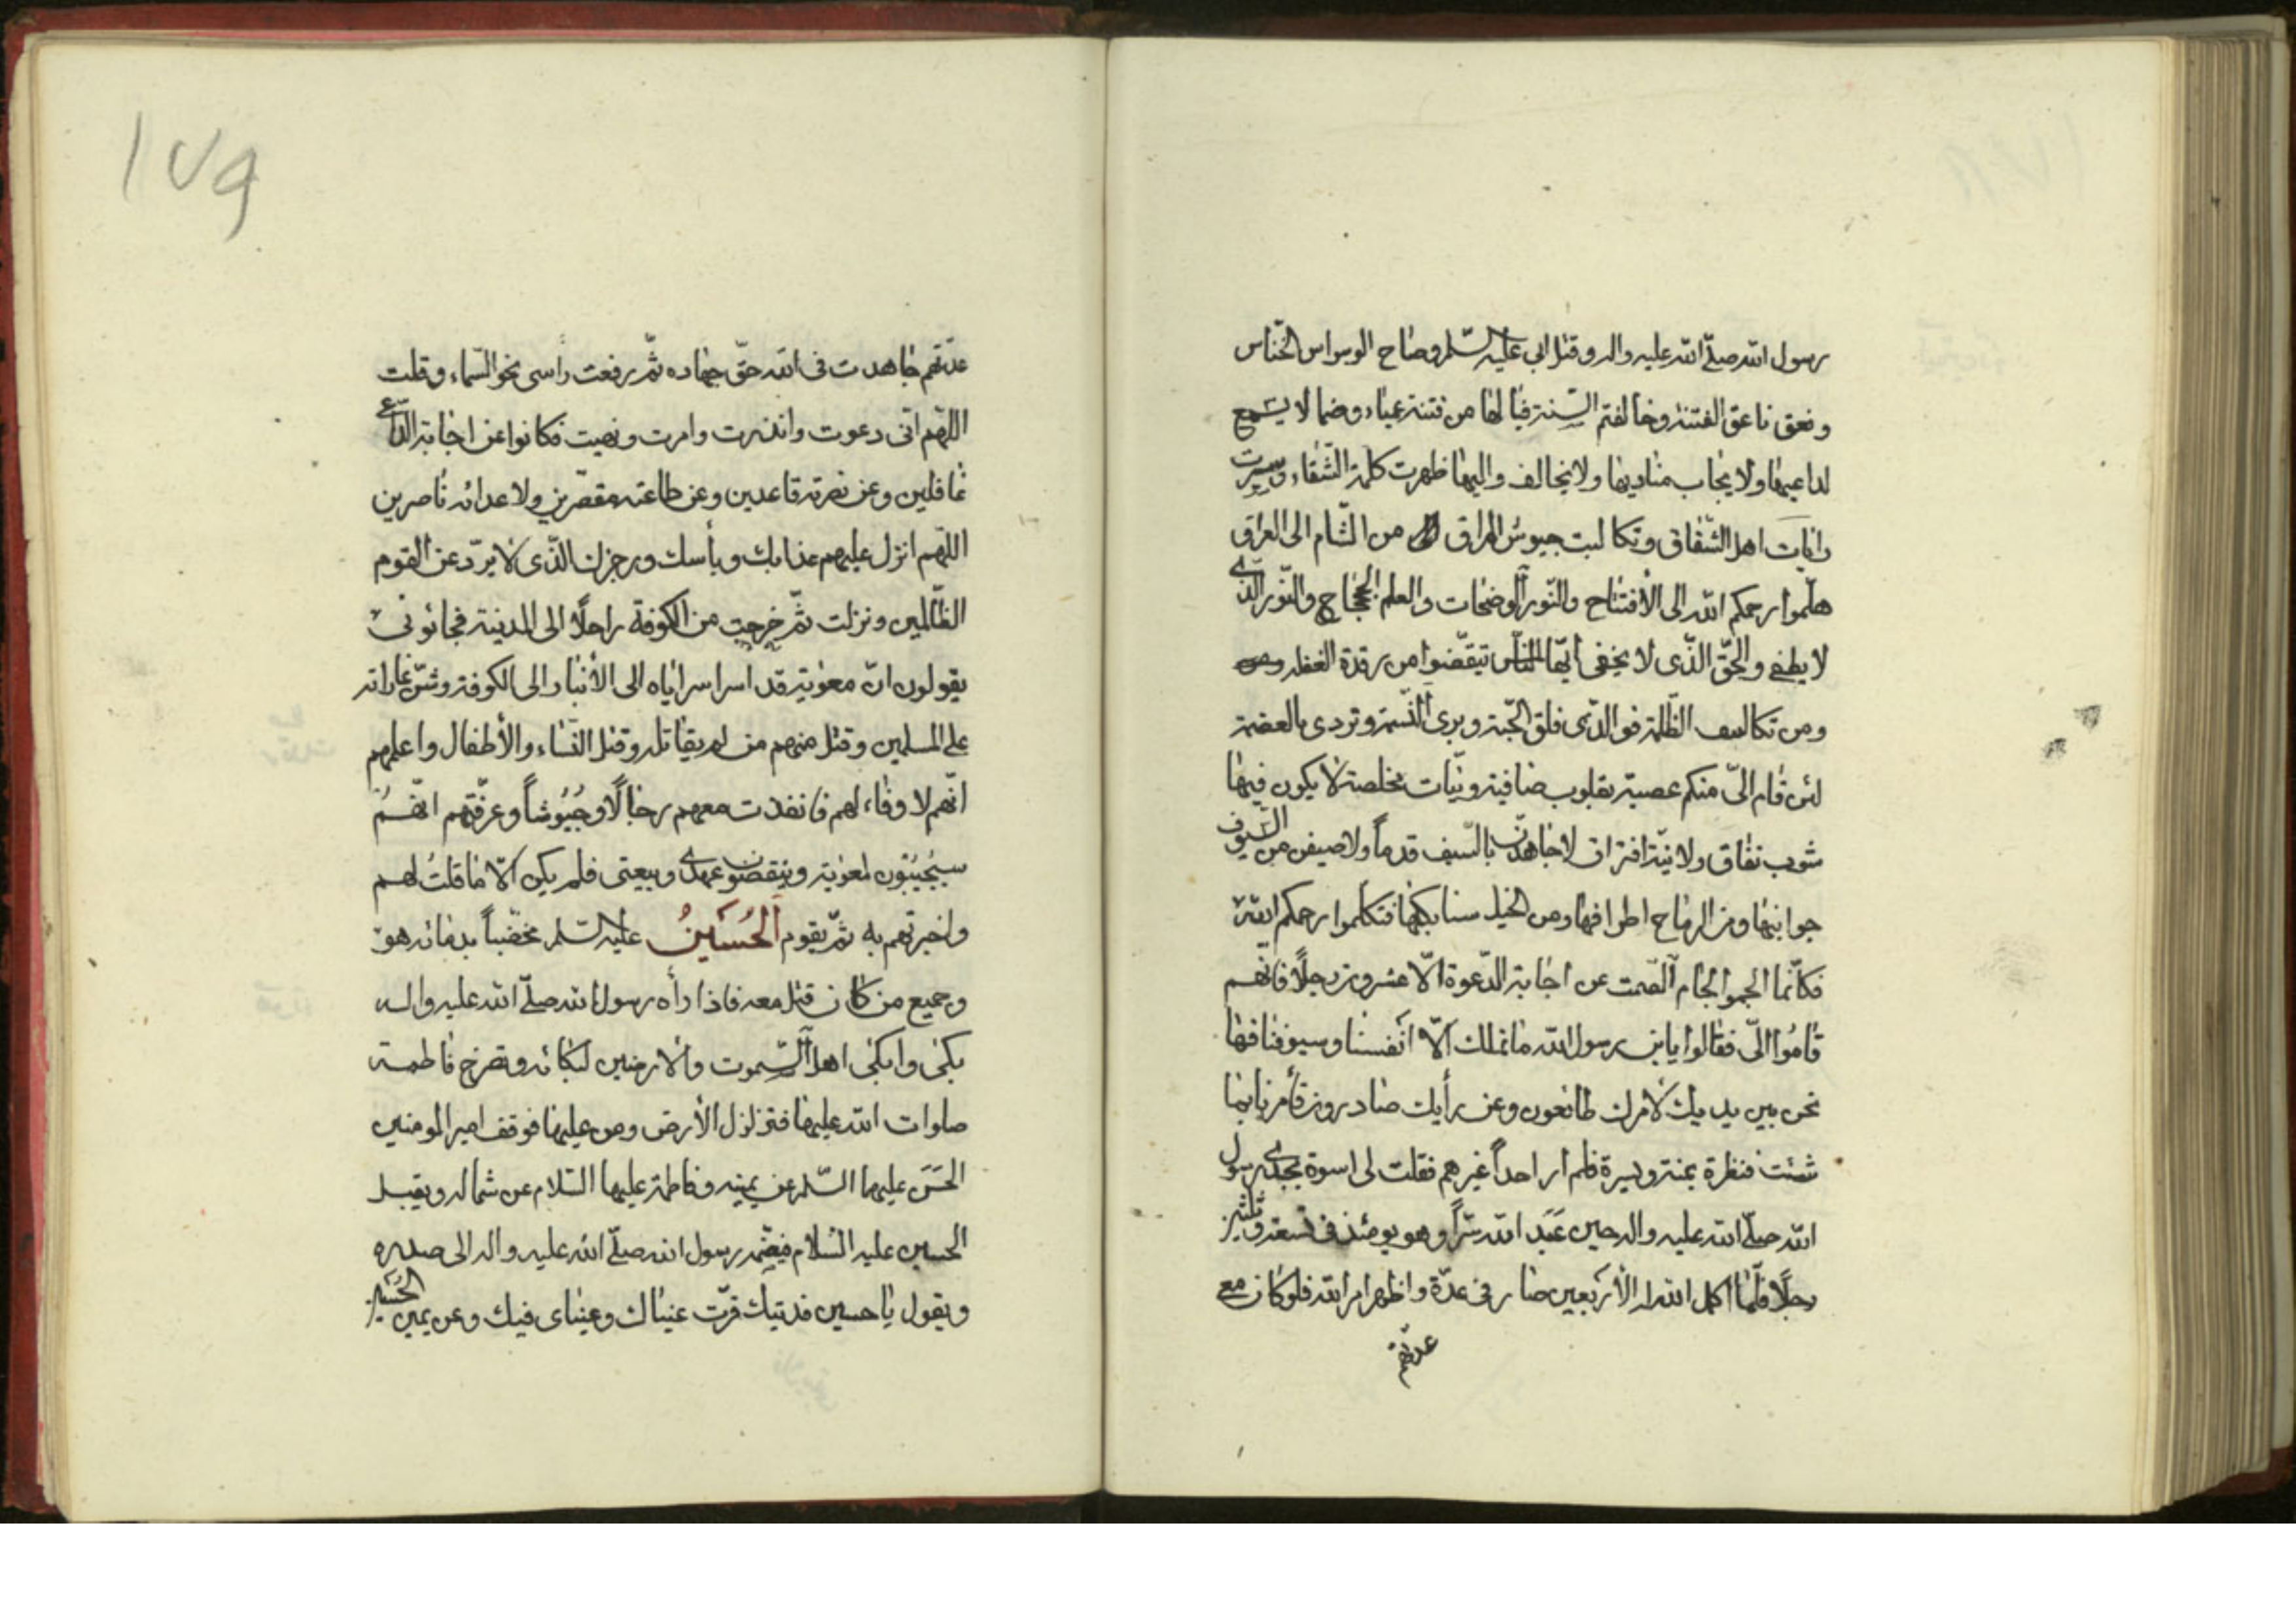 رسول الله صلّى الله عليه واله وقتل ابى عليه السّلم وصاح الوسواس الخنّاس
ونعق ناعق الفتنة وخالفتم السّنة فيا لها من فتنة عمياء وصما لا يسمع
لداعيها ولا يجاب مناديها ولا يخالف واليها ظهرت كلمة الشّقاء وسيرت
رايات اهل الشّقاق وتكالبت جيوش المراق من الشّام الى العراق
هلّموا رحمكم الله الى الأفتتاح والنّور الوضحات والعلم الججاج والنّور الّذى
لا يطفى والحقّ الّذى لا يخفى ايّها النّاس تيقّضوا من رقدة الغفلة
ومن تكاثف الظّلمة فو الّذى فلق الحبّة وبرى النّسمة وتردى بالعضمة
لئن قام الىّ منكم عصبة بقلوب صافية ونيّات مخلصة لا يكون فيها
شوب نفاق ولا نيّة افتراق لاجاهدنّ بالسّيف قدماً ولاصيفن من السّيوف
جوانبها ومن الرماح اطرافها ومن الخيل سنابكها فتكلموا رحمكم الله
فكأنّما الجموا لجام الصّمت عن اجابة الدّعوة الّا عشرون رجلًا فانّهم
قامُوا الىّ فقالوا يابن رسول الله ما نملك الّا انفسنا وسيوفنا فها
نحن بين يديك لامرك طائعون وعن رأيك صادرون فأمرنا بما
شئت فنظرة يمنة ويسرة فلم ار احداً غيرهم فقلت لى اسوة بجدى رسول
الله صلّى الله عليه واله حين عَبَد الله سرّاً وهو يومئذ فى تسعة وثلثين
رجلًا فلّما اكمل الله له الأربعين صار فى عدّة واظهر امر الله فلو كان مع
عدّتهم
١٧٩
عدّتهم جاهدت فى الله حقّ جهاده ثمّ رفعت رأسى نحو السّماء وقلت
اللّهم انّى دعوت وانذرت وامرت ونهيت فكانوا عن اجابة الدّاعى
غافلين وعن نصرته قاعدين وعن طاعته مقصّرين ولاعدائه ناصرين
اللّهم انزل عليهم عذابك وبأسك ورجزك الّذى لا يردّ عن القوم
الظّالمين ونزلت ثمّ خرجت من الكوفة راحلًا الى المدينة فجائونى
يقولون انّ معوية قد اسرا سراياه الى الأنبار والى الكوفة وشنّ غاراته
على المسلمين وقتل منهم من لم يقاتله وقتل النّساء والأطفال واعلمهم
انّهم لا وفاء لهم فانفذت معهم رجالًا وجُيُوشاً وعرّفتهم انّهم
سيُجيبُون لمعوية وينقضون عهدى وبيعتى فلم يكن الّا ما قلتُ لهم
واخبرتهم به ثمّ يقوم الحُسَينُ عليه السّلم مخضّباً بدمائه هو
وجميع من كان قتل معه فاذا رأه رسول الله صلّى الله عليه واله
بكى وابكى اهل السّموت والارضين لبكائه وتصرخ فاطمة
صلوات الله عليها فتزلزل الأرض ومن عليها فوقف امير المومنين
الحَسَن عليهما السّلم عن يمينه وفاطمة عليها السّلام عن شماله ويقبل
الحسين عليه السّلام فيضّمه رسول الله صلّى الله عليه واله الى صدره
ويقول يا حسين فديتك قرّت عيناك وعيناى فيك وعن يمين الحُسَين